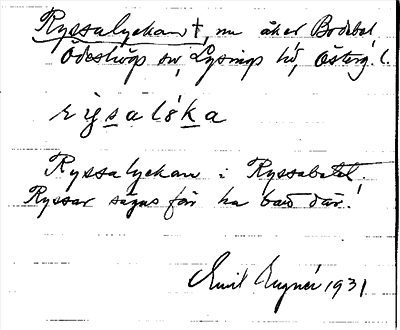 Ryssalyckan †, nu åker Bodebol
Ödeshögs sn, Lysings hd, Österg. l.
rysalöka
Ryssalyckan i Ryssabotet.
Ryssar sägas för ha bott där!
Emil 1931